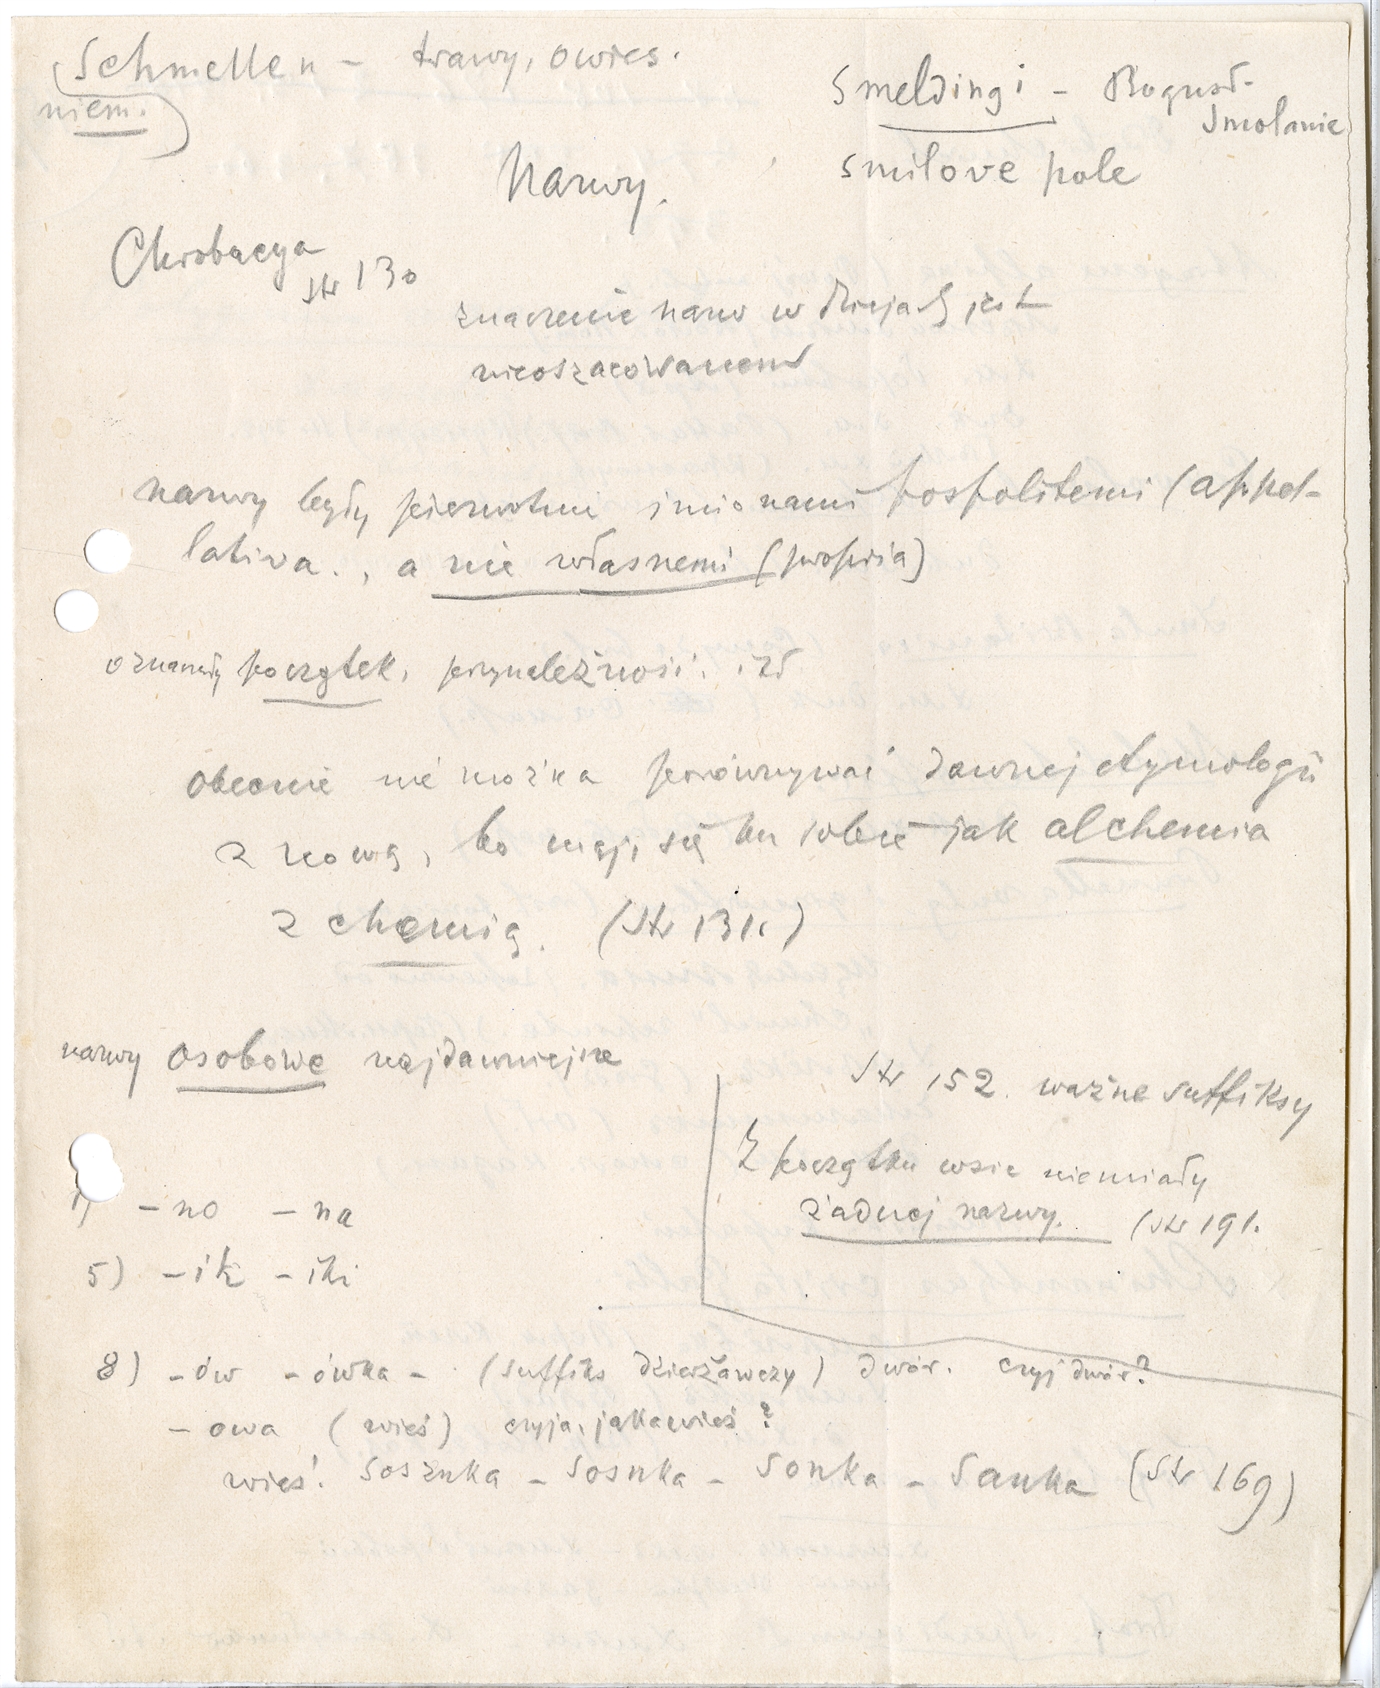 Schmellen – trawy, owies.
niem.
Smeldingi – Bogusł-
Smolanie
smilove pole
Nazwy.
Chrobacya
str 130
znaczenie nazw w dziejach jest
nieoszacowanem
nazwy były pierwotnie imionami pospolitemi (appel-
lativa., a nie własnemi (propria)
oznaczały początek, przynależność. itd
obecnie nie można porównywać dawnej etymologii
z nową, bo mają się ku sobie jak alchemia
z chemią. (Str 131.)
nazwy osobowe najdawniejsze
Str 152. ważne suffiksy
Z początku wsie niemiały
żadnej nazwy. (str 191.
1) –no –na
5) –ik –iki
8) –ów –ówka – (suffiks dzierżawczy) dwór. czyj dwór?
– owa (wieś) czyja, jaka wieś?
wieś. Soszuka – Sosnka – Sonka – Sanka (Str 169)